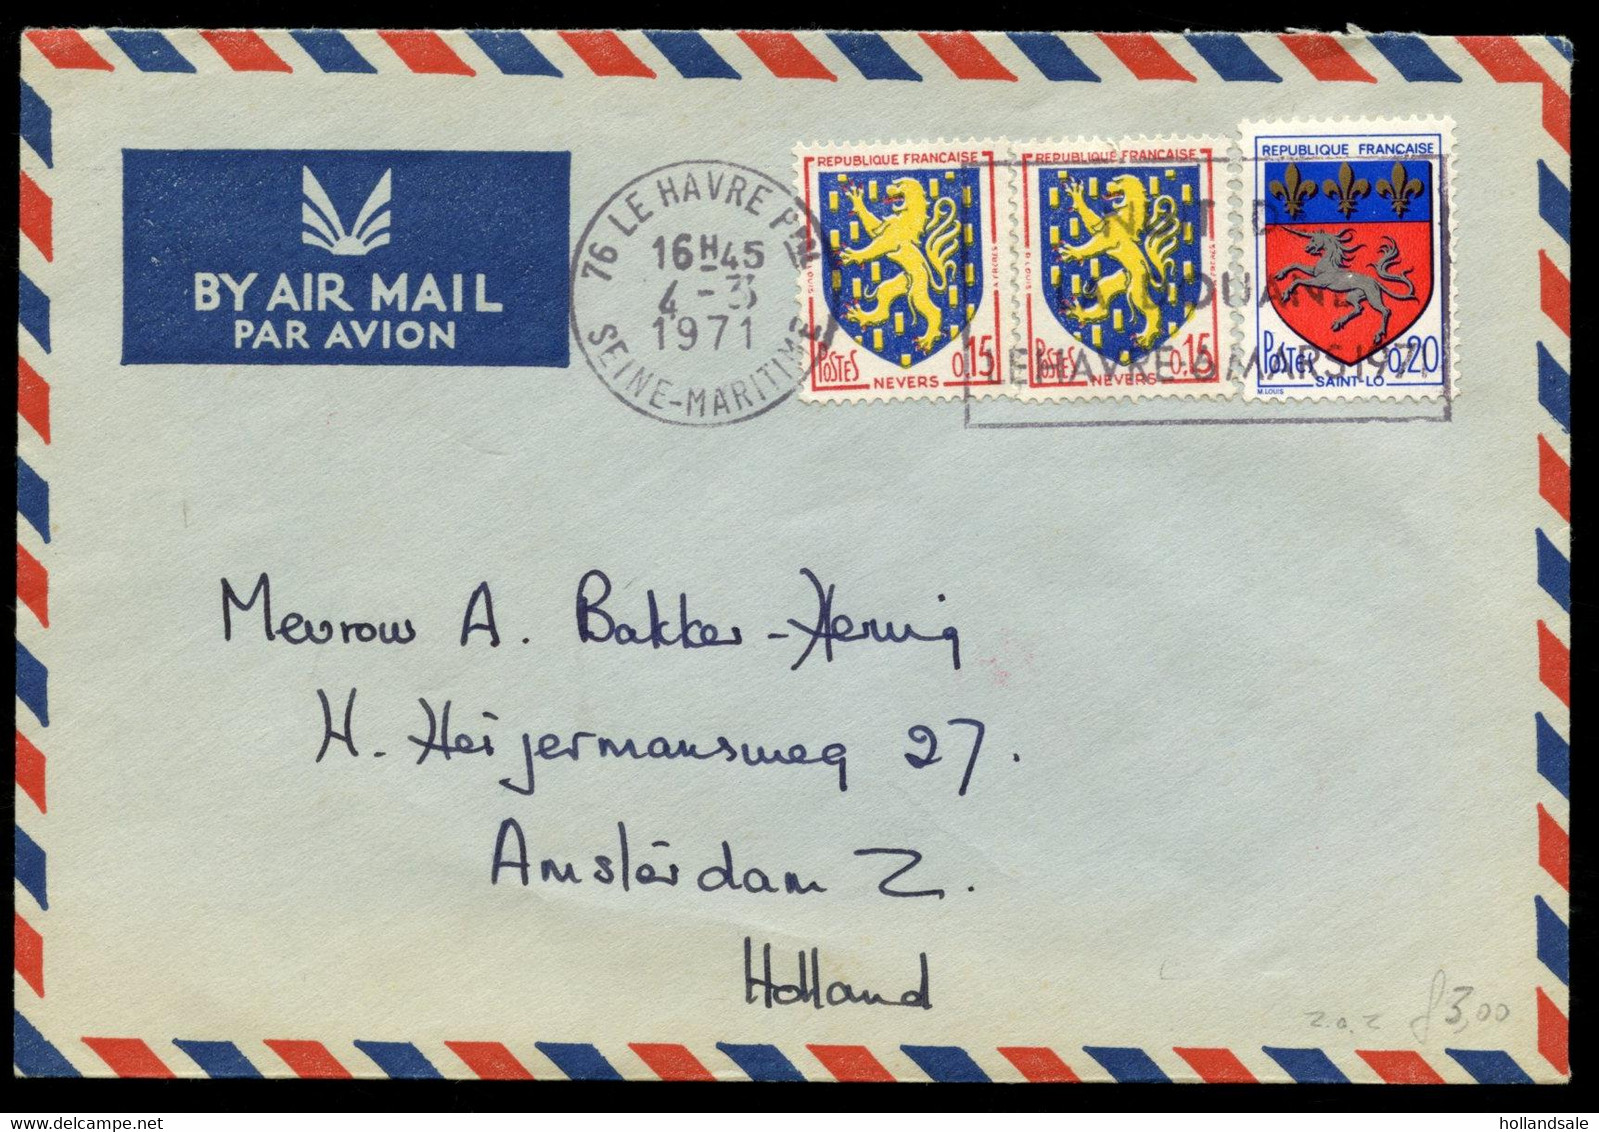 BY AIR MAIL
PAR AVION
76 LE HAVRE PPAL
16H45
4-3
1971
SEINE-MARITIME
REPUBLIQUE FRANÇAISE
POSTES 0,15
NEVERS
REPUBLIQUE FRANÇAISE
POSTES 0,15
NEVERS
REPUBLIQUE FRANÇAISE
POSTES 0,20
SAINT-LO
M.LOUIS
NUIT DE
LA DOUANE
LE HAVRE 6 MARS 1971
Mevrouw A. Bakker-Hernig
H. Heijermansweg 27.
Amsterdam Z.
Holland
z.o.z f3,00
hollandsale